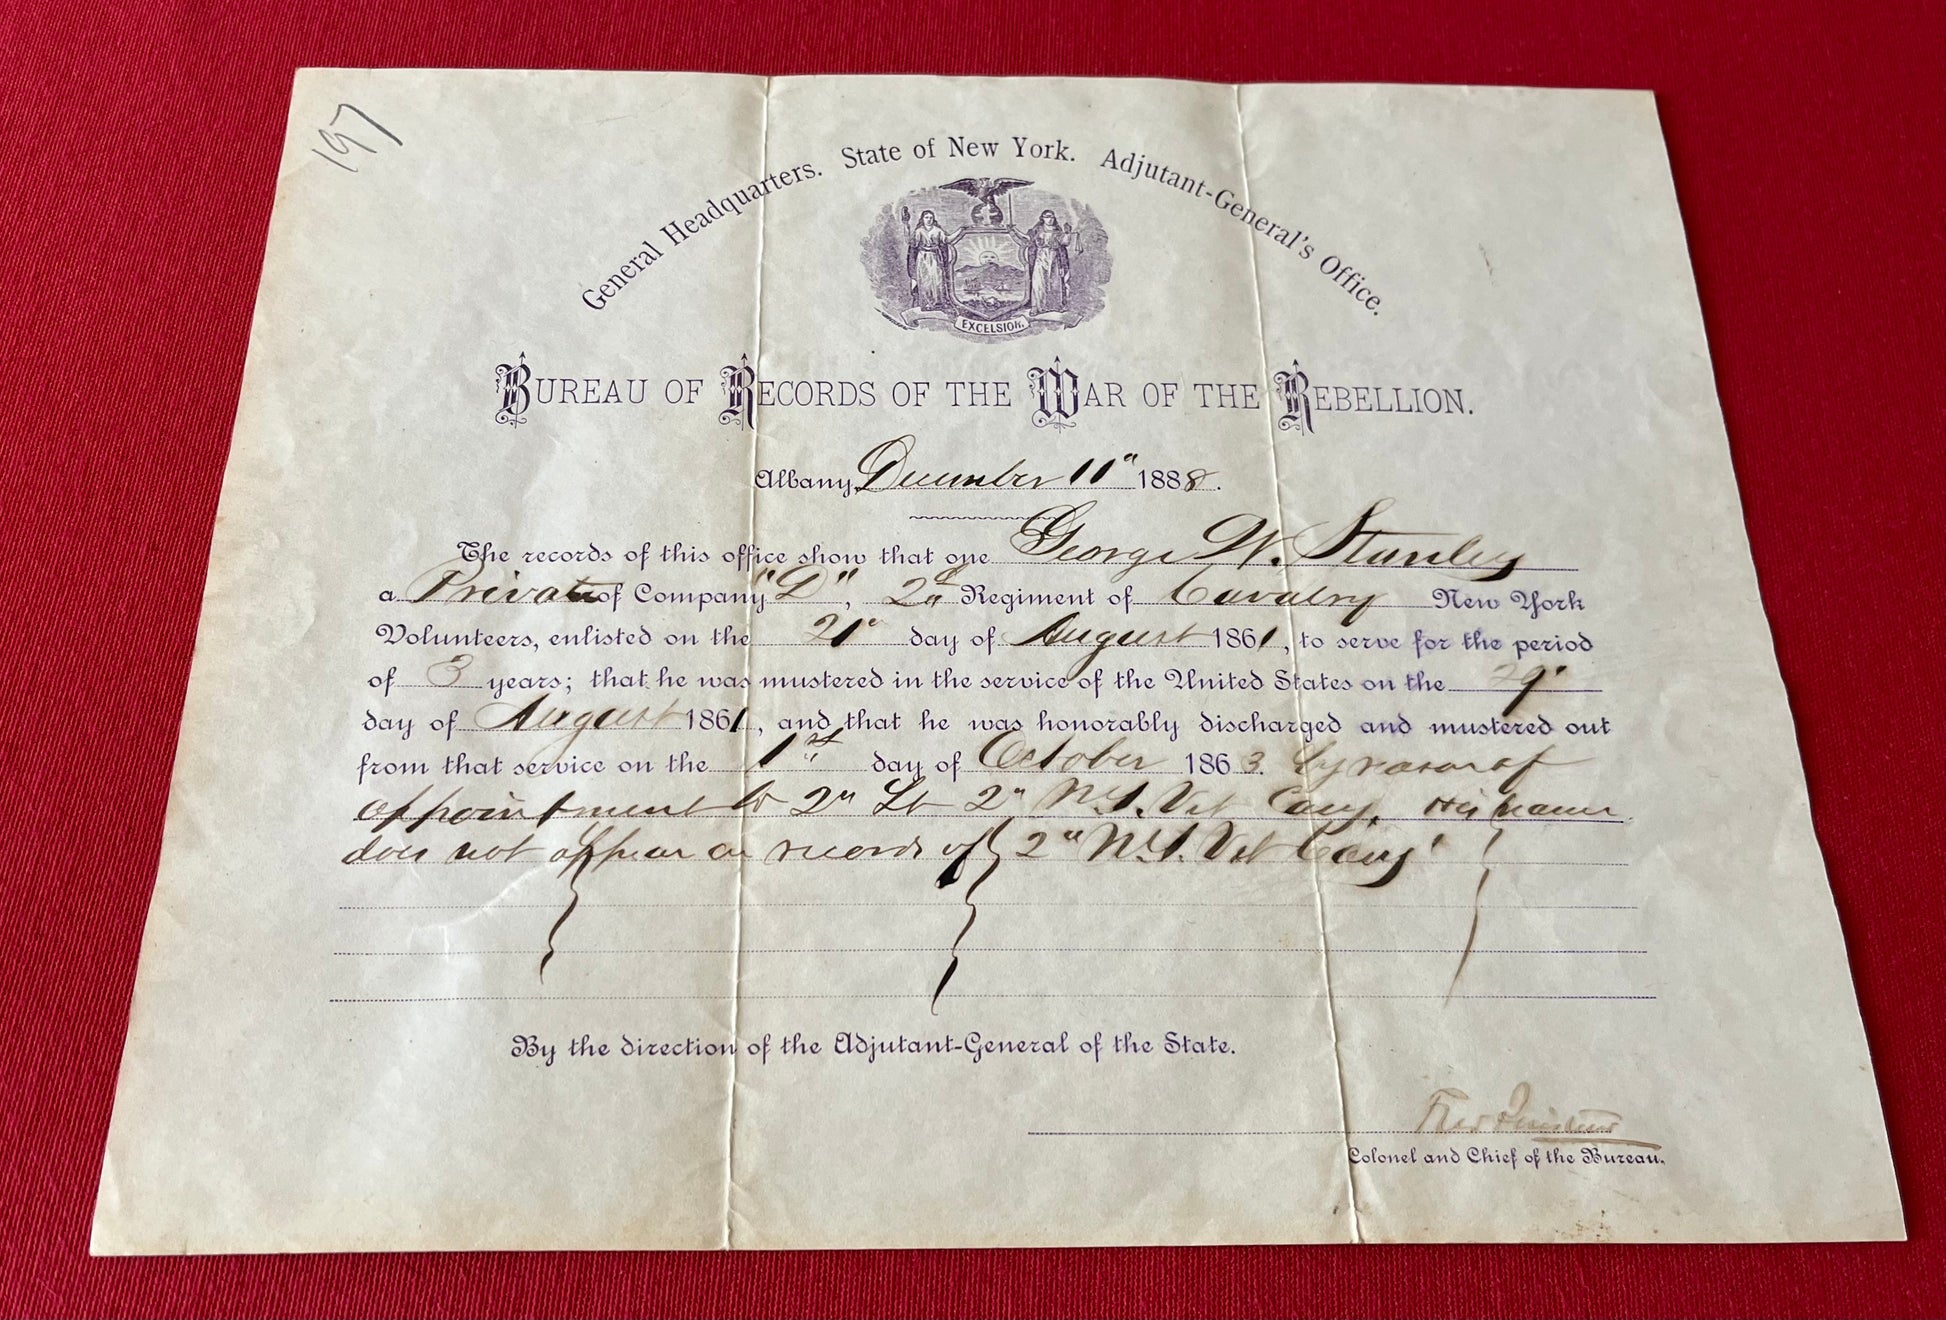 197
General Headquarters. State of New York. Adjutant-General's Office.
EXCELSIOR.
BUREAU OF RECORDS OF THE WAR OF THE REBELLION.
Albany, December 11" 1888.
The records of this office show that one George W. Stanley
a Private of Company "D", 2d Regiment of Cavalry New York
Volunteers, enlisted on the 21" day of August 1861, to serve for the period
of 3 years; that he was mustered in the service of the United States on the 29"
day of August 1861, and that he was honorably discharged and mustered out
from that service on the 1st day of October 1863. by reason of
appointment to 2" Lt 2" N.Y. Vet Cavy. His name
does not appear on records of 2" N.Y. Vet Cavy
By the direction of the Adjutant-General of the State.
Fred
Colonel and Chief of the Bureau.